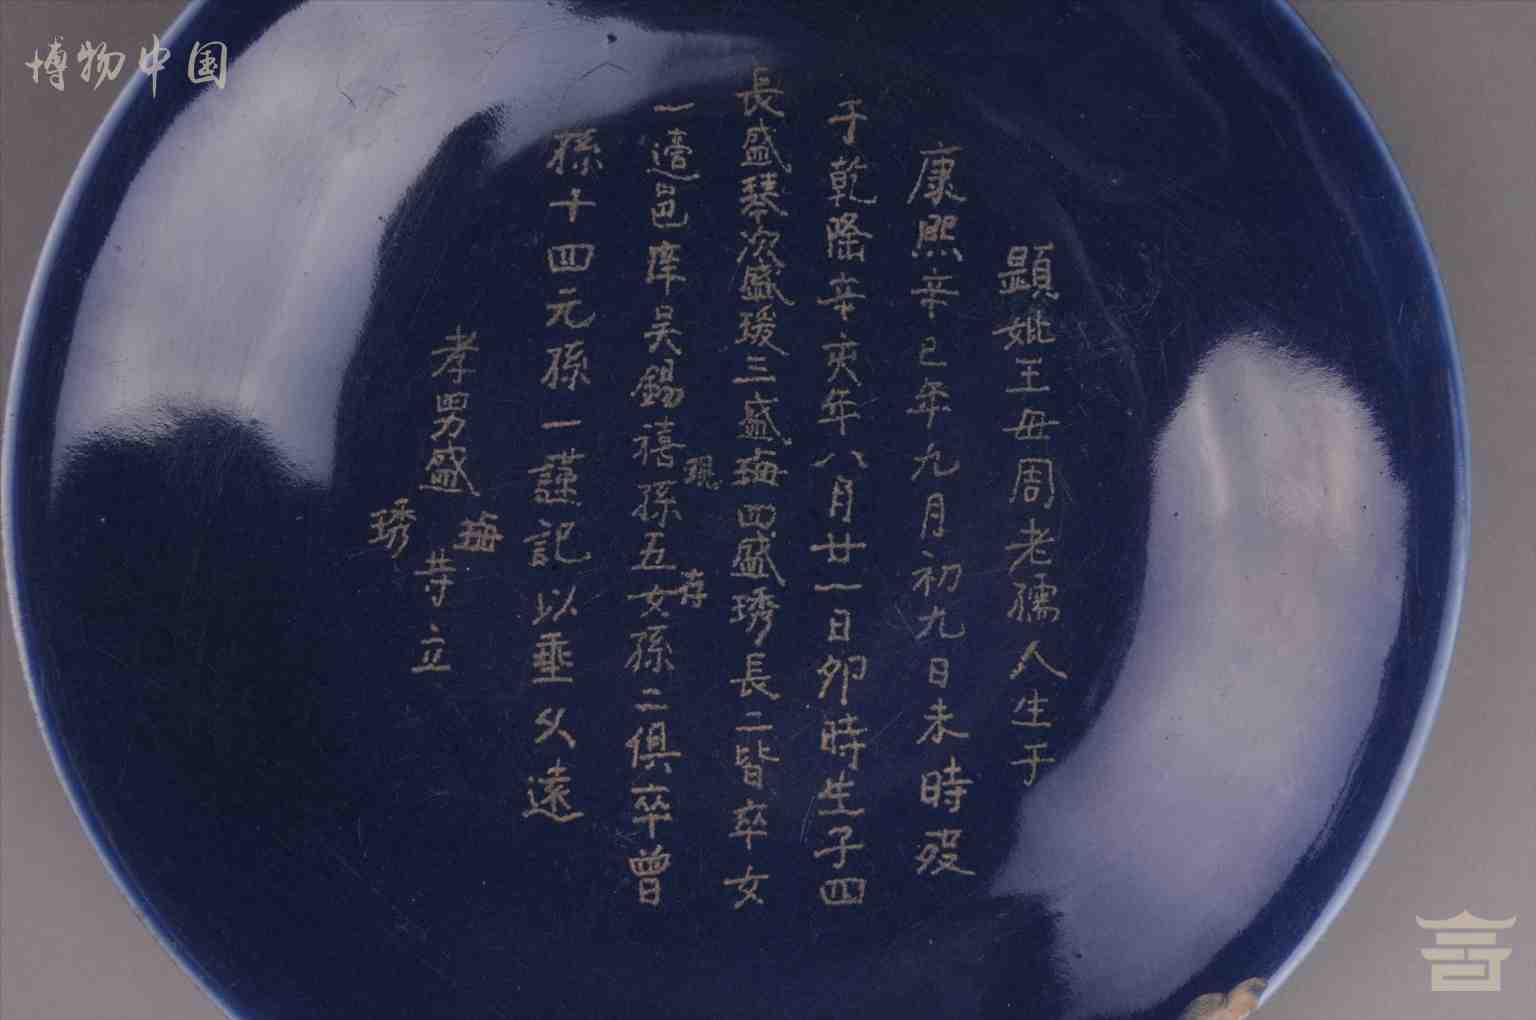 博物中国
顕妣王母周老孺人生于
康熙辛巳年九月初九日未時歿
于乾隆辛亥年八月廿一日卯時生子四
長盛琴次盛瑗三盛珻四盛琇長二皆卒女
一適邑庠吳錫禧孫五女孫二俱卒曾
琨存
孫十四元孫一謹記以垂久遠
孝男盛珻琇等立